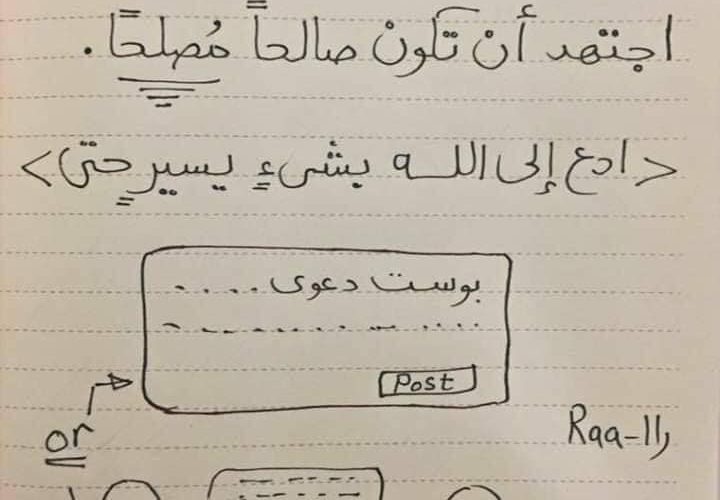 اجتهد أنْ تكونْ صالحاً مُصلحًا .
< ادع إلى الله بشيءٍ يسيرٍ حتى >
بوست دعوى ....
Post
or
Raa-الر